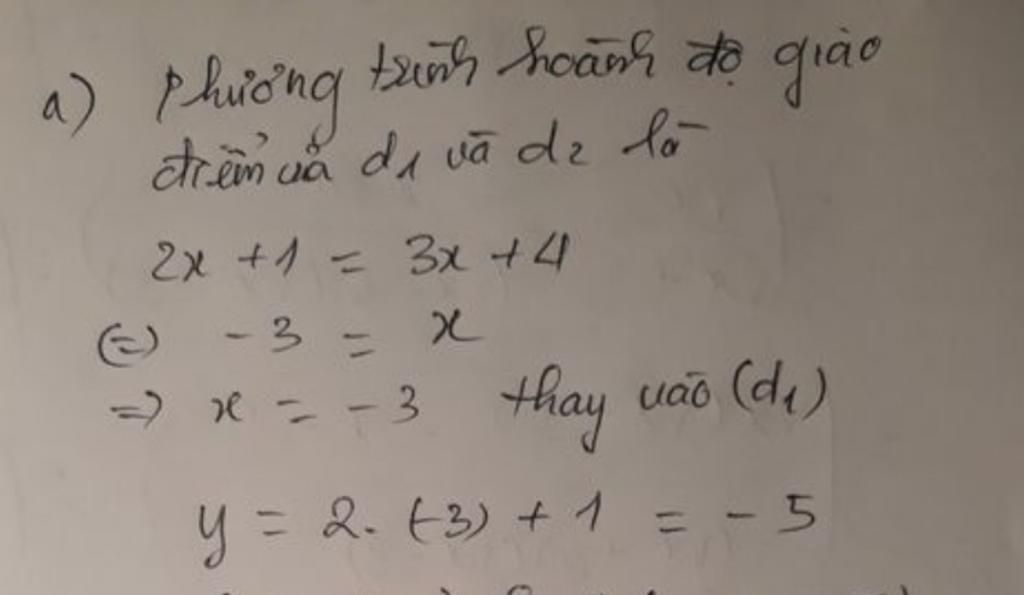 a) Phương trình hoành độ giao
điểm của d1 và d2 là
2x + 1 = 3x + 4
(=) - 3 = x
=) x = - 3 thay vào (d1)
y = 2. (-3) + 1 = - 5